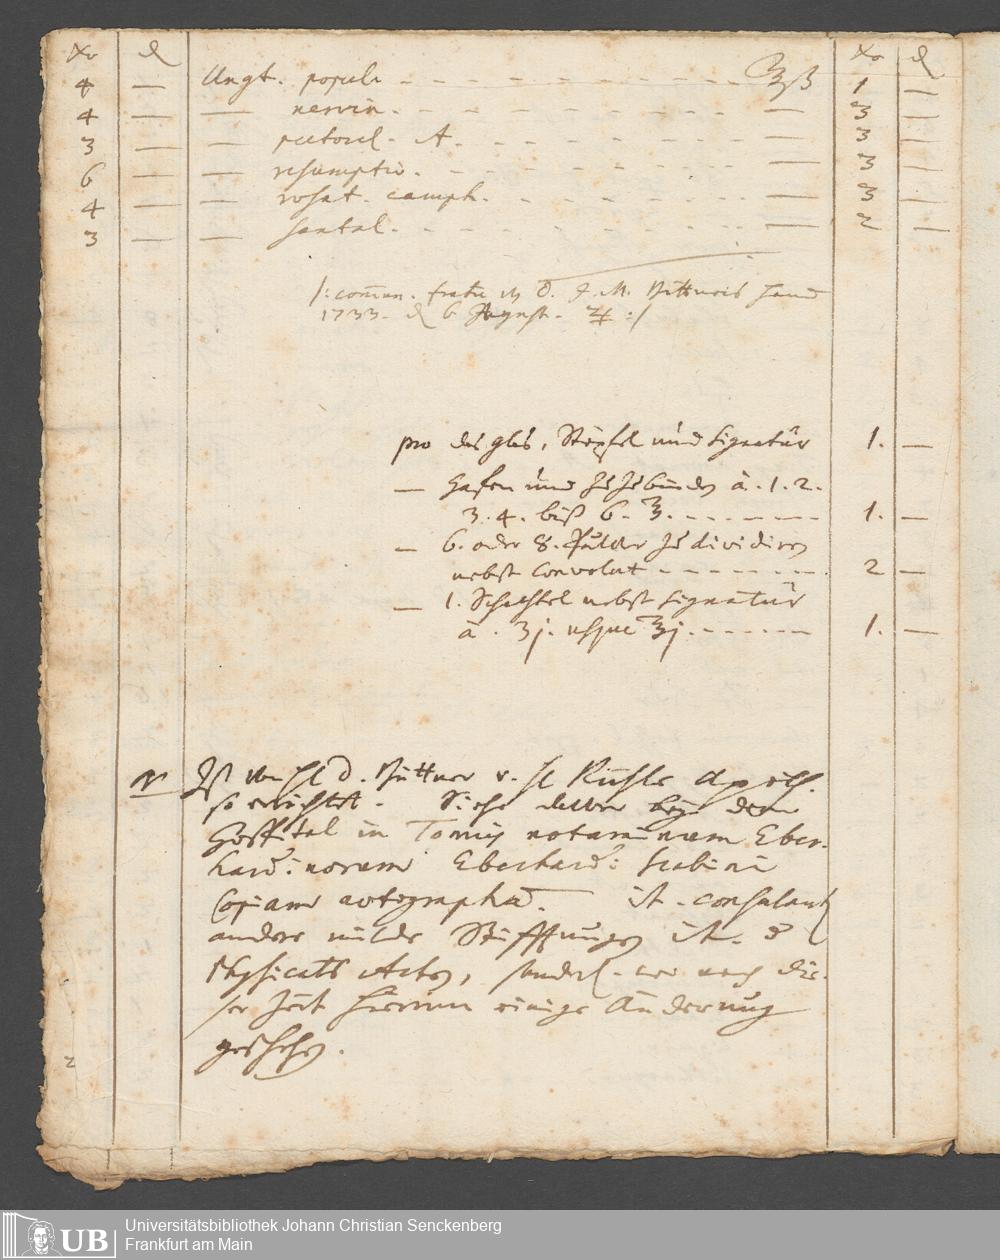 Xr ₰ Xr ₰
4 — Ungt. populi - - - - ℥ß 1 —
4 — — nervin. - - - - — 3 —
3 — — pectoral. A. - - - - — 3 —
6 — — resumptiv. - - - - — 3 —
4 — — rosat. camph. - - - - — 3 —
3 — — santal. - - - - — 2 —
/: comun. D. J. M. Büttneris
1733. d. 6 August. ♃ :/
pro das glas, Stöpsel und signatur 1. —
— Hafen und zu zubinden à. 1. 2.
3. 4. biß 6. ℥. - - - - 1. —
— 6. oder 8. Pulver zu dividiren
nebst Convolut - - - - 2 —
— 1. Schachtel nebst signatur
à. ʒj. usque ℥j. - - - - 1. —
Ist von H D. Büttner v. H Apoth.
so errichtet. Siehe bey dem
Hospital in Tomis notaminum Eber-
hard: norum Eberhard: Scabini
Copiam autographa. it. consulant
andere milde Stifftungen it. d
Physicats Acten, wo nach die-
ser Zeit hierinn einige Änderung
geschehen.
2
UB Universitätsbibliothek Johann Christian Senckenberg
Frankfurt am Main